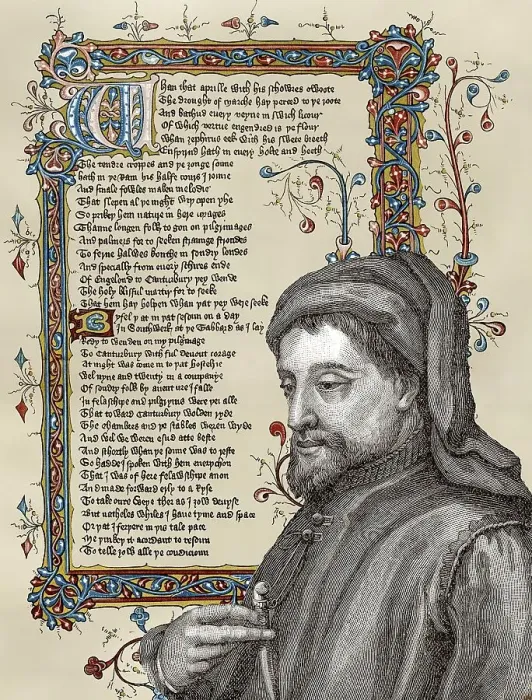 Whan that aprille with his schowres swoote
The drought of marche hay perced to ye roote
And bathud every veyne in swich licour
Of which vertue engendred is ye flour
Whan zephirus eek with his swete breeth
Enspirud hath in every holte and heeth
The tendre croppes and ye yonge sonne
hath in ye Ram his halfe cours I ronne
And smale fowles maken melodie
That slepen al ye night with open yhe
So priketh hem nature in here corages
Thanne longen folk to gon on pilgrimages
And palmers for to seeken straunge strondes
To ferne halwes kouthe in sondry londes
And specially from every schires ende
Of engelond to Canturbury yey wende
The holy blisful martir for to seeke
That hem hay holpen whan yat yey were seeke
Byfel y at in yat sesoun on a day
In Southwerk at ye Tabbard as I lay
Redy to wenden on my pilgrimage
To Canturbury with ful devout corage
At night was come in to yat hostelrie
Wel nyne and twenty in a companye
Of sondry folk by aventure i falle
In felaschipe and pilgryms were yei alle
That toward Canturbury wolden ryde
The chambres and ye stables weren wyde
And wel we weren esud atte beste
And schortly whan ye sonne was to reste
So hadde I spoken with hem everychon
That I was of here felawschipe anon
And made forward erly to a ryse
To take oure weye ther as I yow devyse
But natheles whiles I have tyme and space
Or yat I ferere in yis tale pace
Me yinkey it acordant to resoun
To telle yow alle ye condicioun